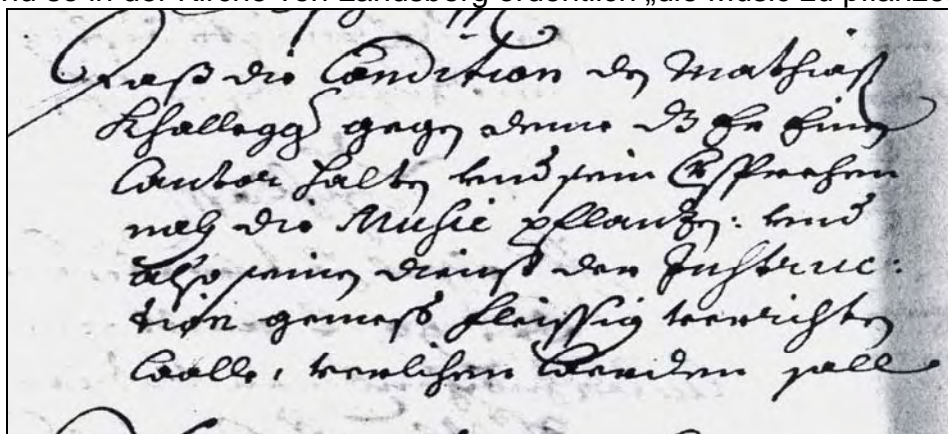 in der Kirche von Landsberg ordentlich „die Music zu pflanze
daß die Condition des Mathias
Khallegg gegen deme dz Er Einen
Cantor halten und sein Esprechen
nach die Music pflantzen: und
also seinen dienst der Instruc:
tion gemeß fleissig verrichten
wolle, verlichen werden soll